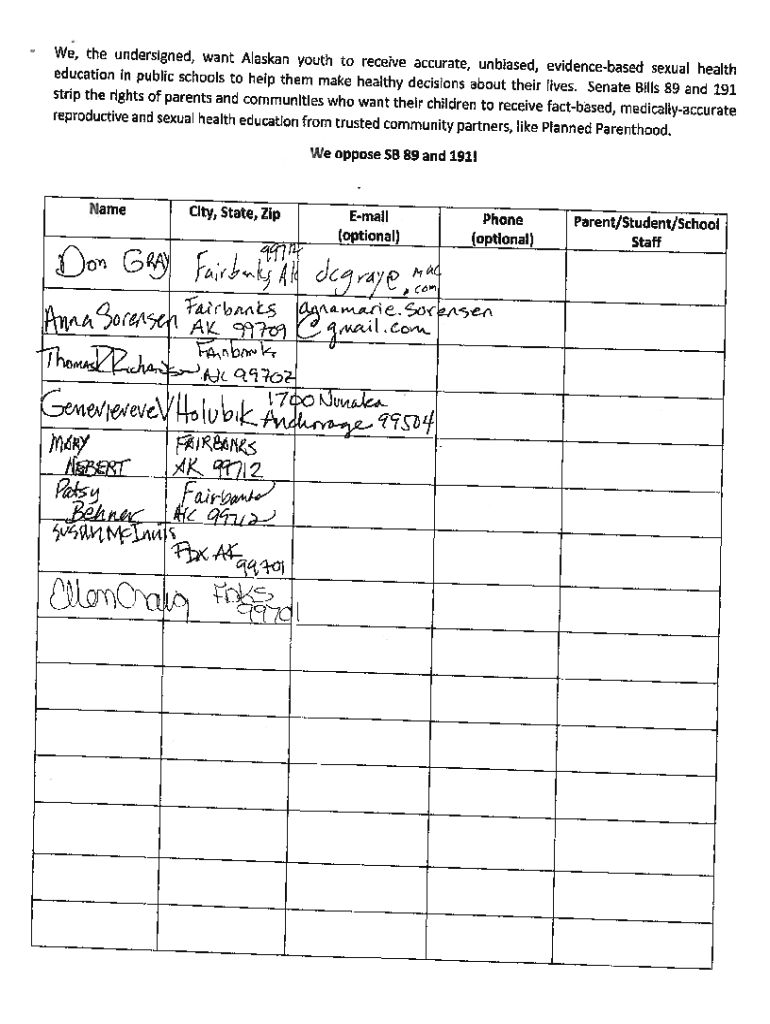 We, the undersigned, want Alaskan youth to receive accurate, unbiased, evidence-based sexual health
education in public schools to help them make healthy decisions about their lives. Senate Bills 89 and 191
strip the rights of parents and communities who want their children to receive fact-based, medically-accurate
reproductive and sexual health education from trusted community partners, like Planned Parenthood.
We oppose SB 89 and 191!
Name City, State, Zip E-mail (optional) Phone (optional) Parent/Student/School Staff
Don GRAY Fairbanks AK 99712 dcgray@mac.com
Anna Sorensen Fairbanks annamarie.sorensen
AK 99709 @gmail.com
Thomas Richardson Fairbanks
AK 99702
Genevieve Holubik 1700 Nunaka
Anchorage 99504
MARY FAIRBANKS
NEBERT AK 99712
Patsy Fairbanks
Behner AK 99712
SUSAN McInnis
FBX AK
99701
Ellen Craig FBKS
99701